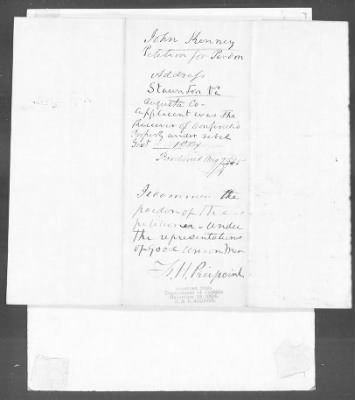 John Kenney
Petition for Pardon
Address
Staunton Va
Augusta Co-
Applicant was the
Receiver of Confiscated
Property under rebel
Govt
Pardoned Aug
I recommend the
pardon of the
petitioner - Under
the representations
of good Union Men
F. H. Peirpoint
Received from